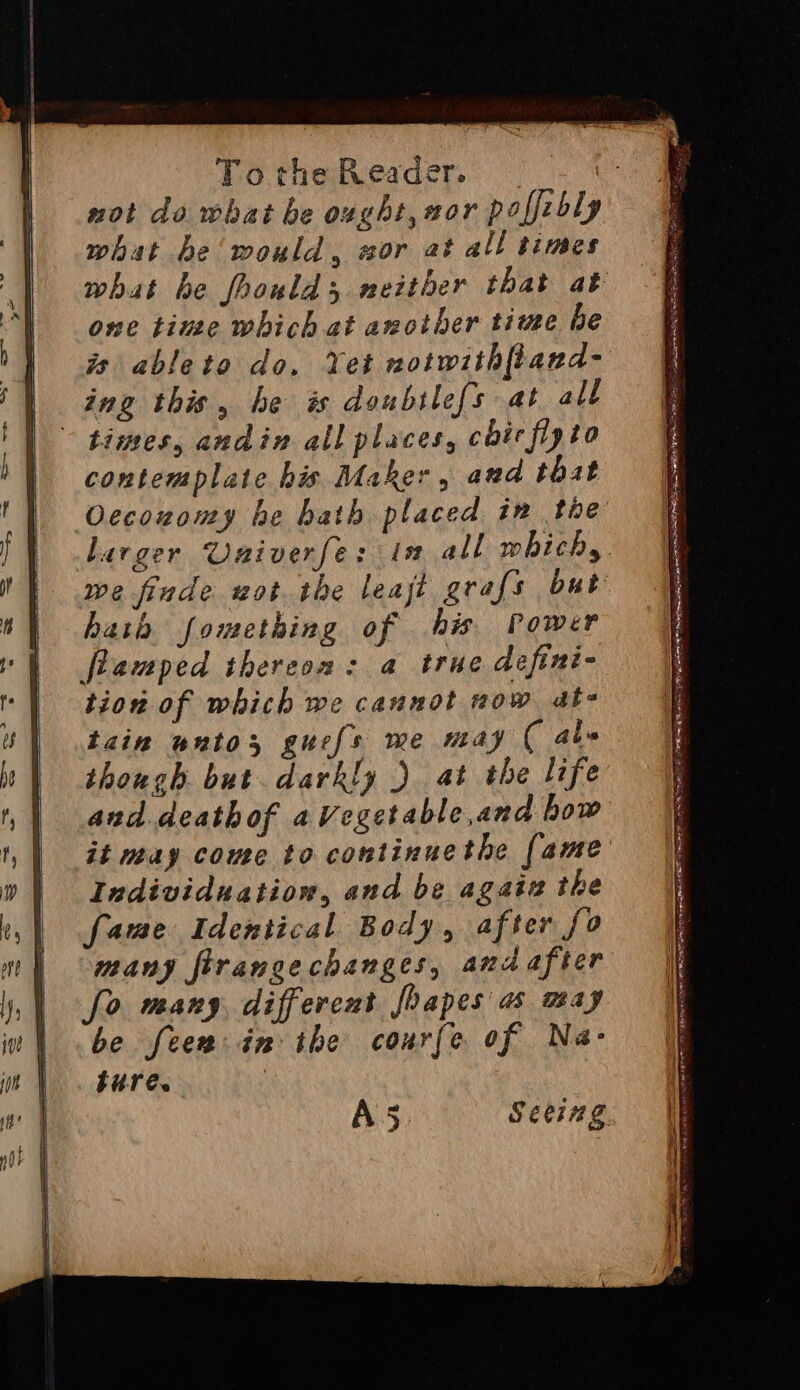 To the Reader.
not do what he ought, nor poſſibly
what he would, nor at all times
what he ſhould; neither that at
one time which at another time he
is able to do. Yet notwithſtand-
ing this, he is doubtleſs at all
times, and in all places, chiefly to
contemplate his Maker, and that
Oeconomy he hath placed in the
larger Univerſe: in all which,
we finde not the leaſt graſs but
hath ſomething of his Power
ſtamped thereon: a true defini-
tion of which we cannot now at-
tain unto; gueſs we may ( al-
though but darkly ) at the life
and death of a Vegetable, and how
it may come to continue the ſame
Individuation, and be again the
ſame Identical Body, after ſo
many ſtrange changes, and after
ſo many different ſhapes as may
be ſeen in the courſe of Na-
ture.
A 5 Seeing